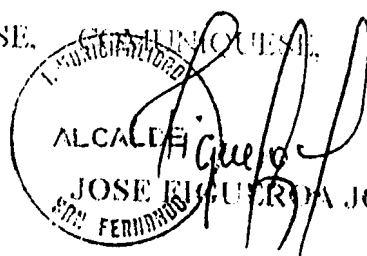 SE, COMUNIQUESE,
I. MUNICIPALIDAD
ALCALDE
Figueroa
JOSE FIGUEROA JO
SAN FERNANDO